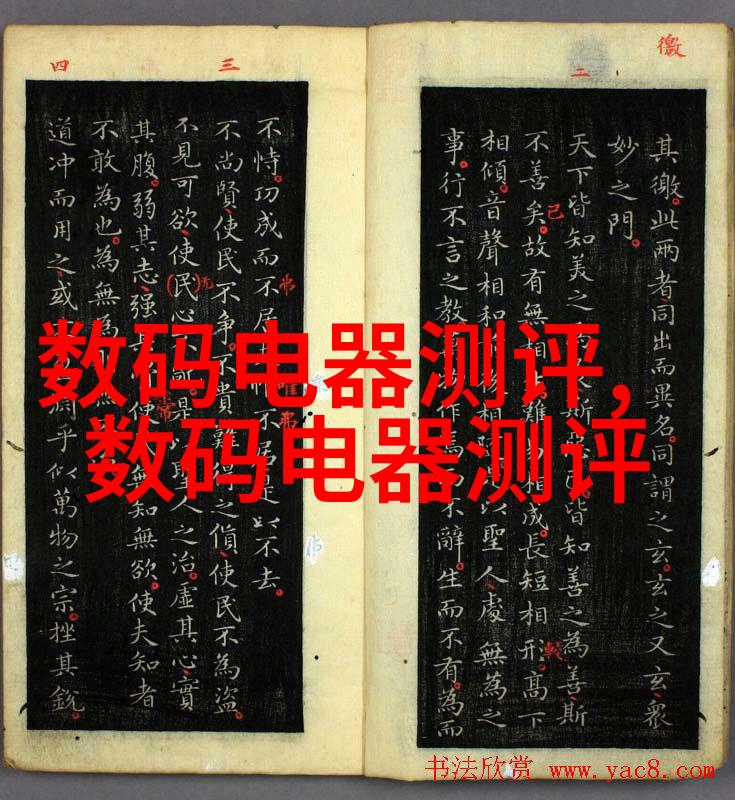 徼
二
其徼。此兩者同出而異名。同謂之玄。玄之又玄衆
妙之門。
天下皆知美之斯皆知善之為善斯
不善矣。故有無相難相成。長短相形。高下
已
較
相傾。音聲相和相以聖人處無為之
事。行不言之教作焉不辭。生而不有。為而
三
四
不恃。功成而不居不居是以不去。
弗
惟弗
不尚賢使民不争。不貴難得之貨使民不為盜。
不見可欲使民心是人之治。虛其心實
无
其腹。弱其志强其使無知無欲。使夫知者
常
不敢為也。為無為無
道冲而用之或淵乎似萬物之宗。挫其銳
数码电器测评,
数码电器测评
书法欣赏 www.yac8.com